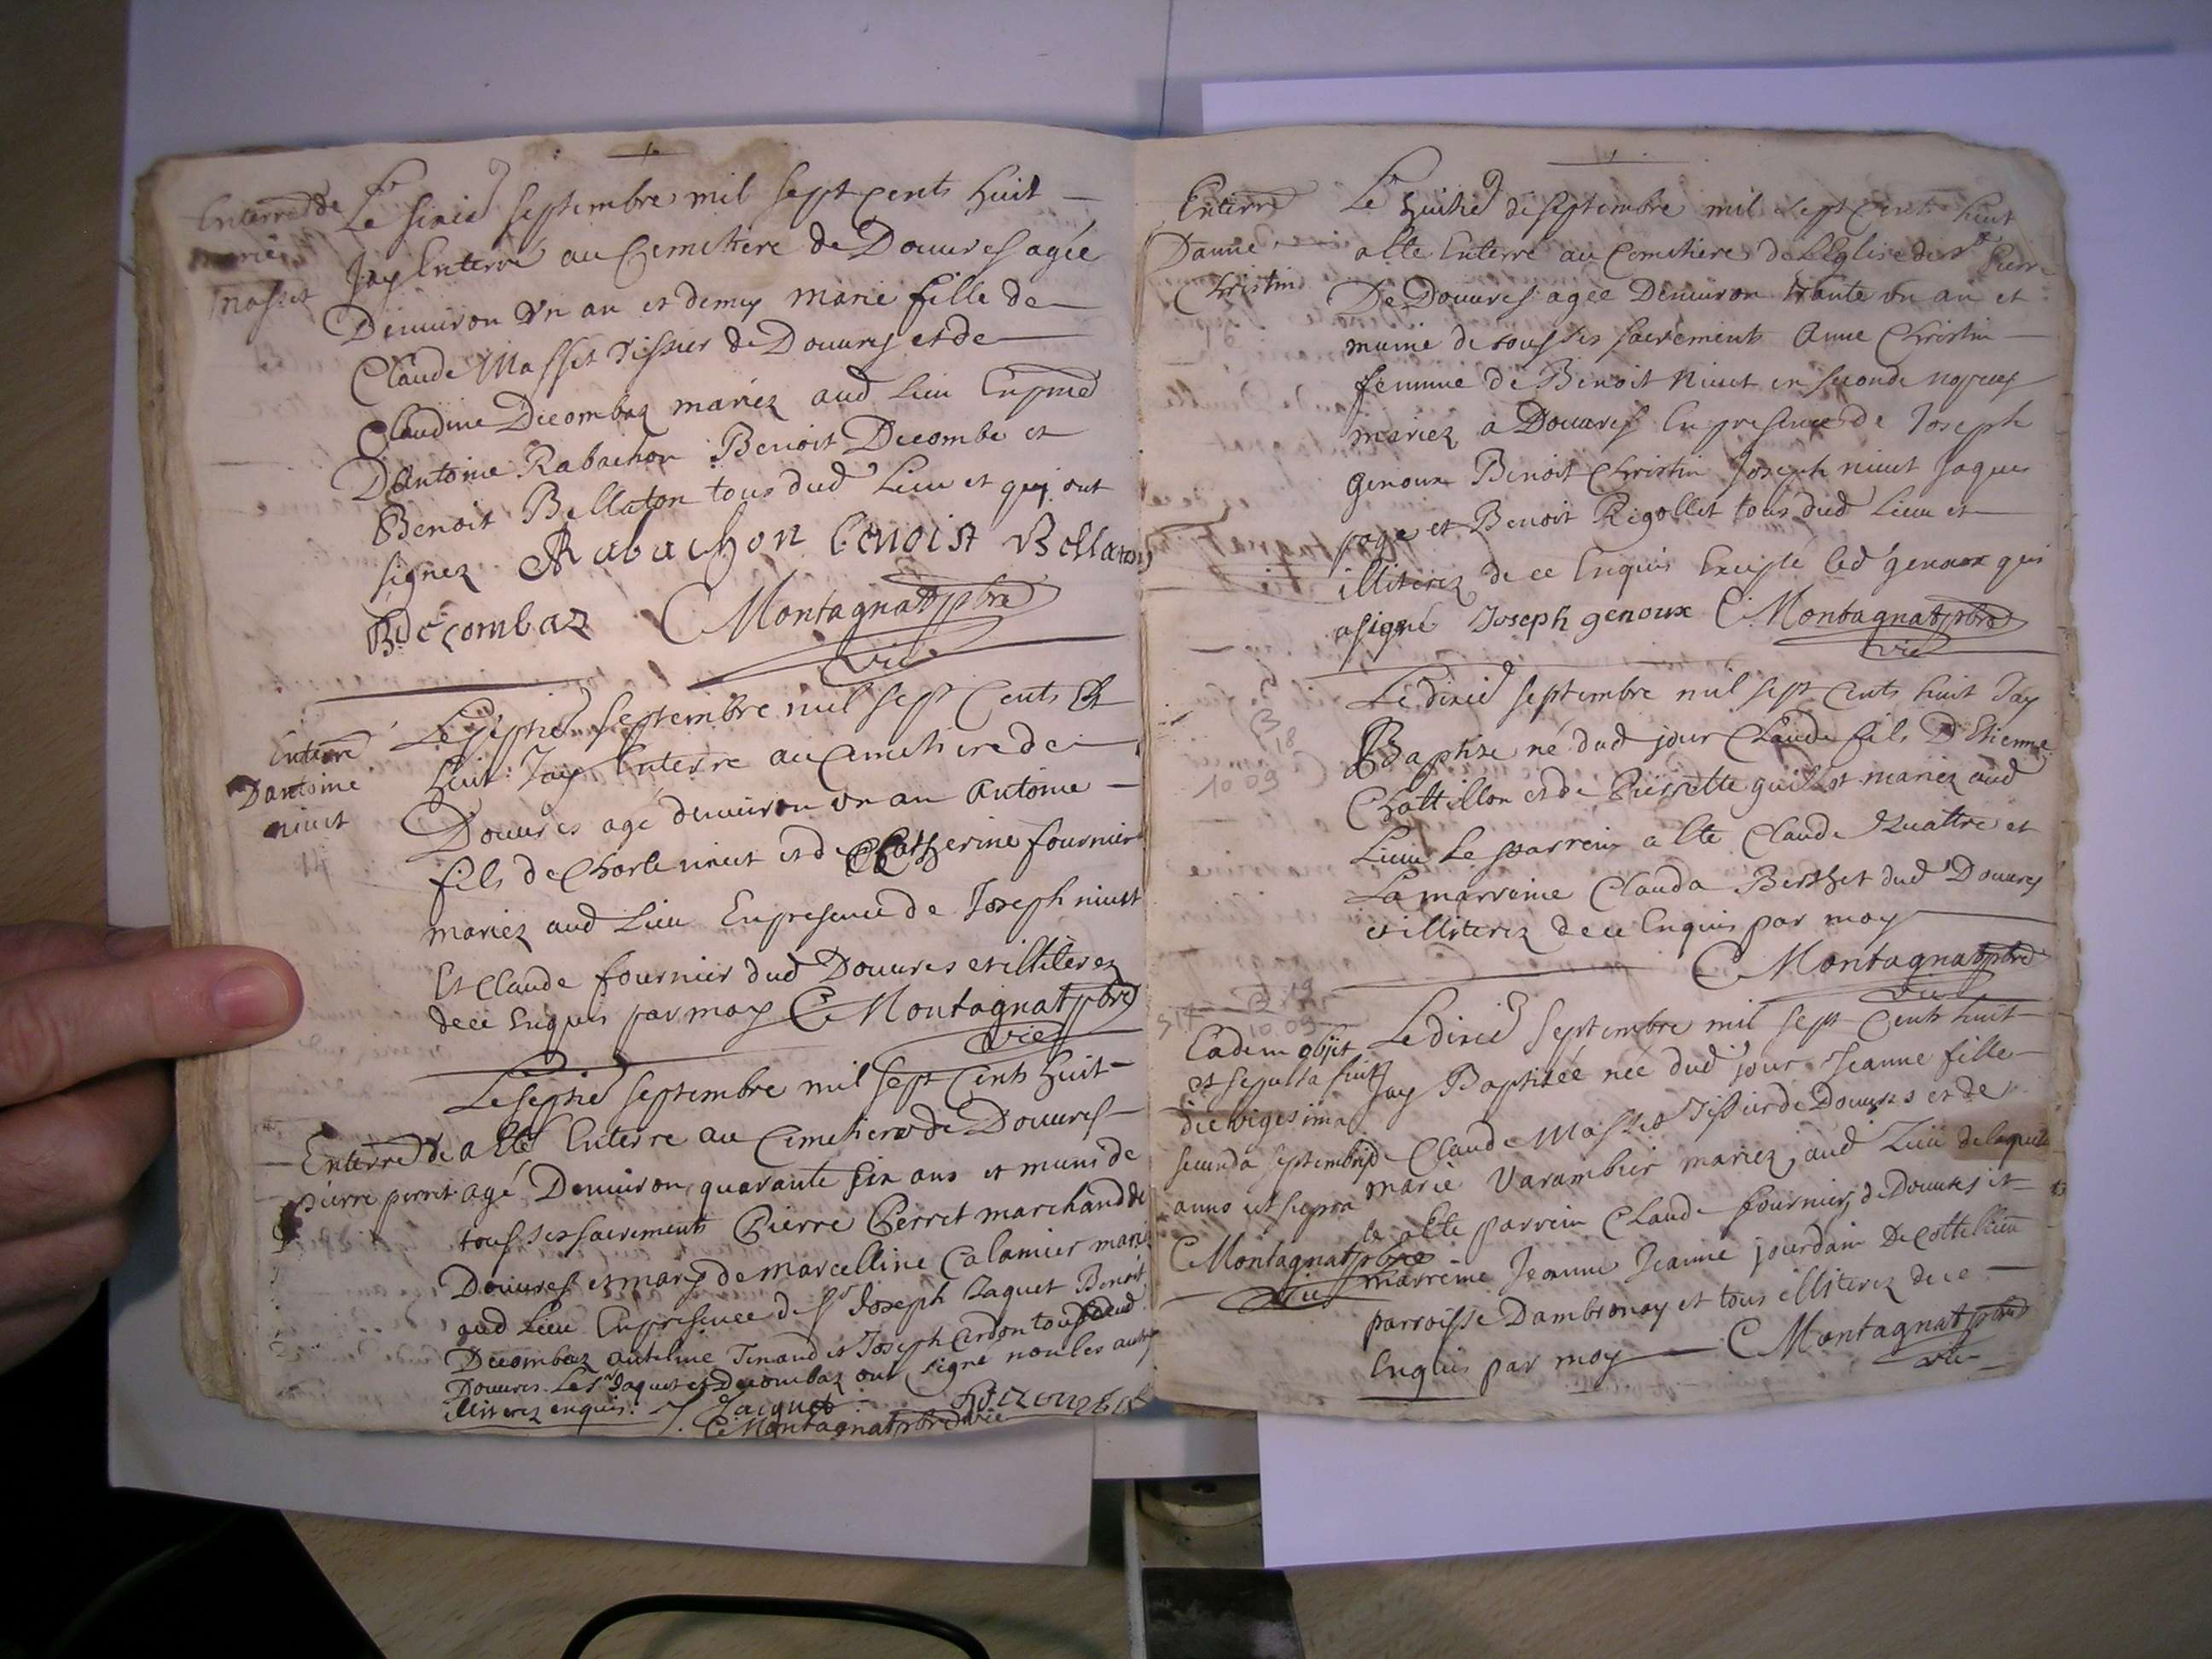 Enterré de
marie
Masset
Le sixie septembre mil sept cents huit
Jay Enterré au Cemitiere de Douures agée
Denuiron vn an et demy marie fille de
Claude Masset Tissier de Douures et de
Claudine Decombaz mariez aud Lieu En pnce
Dantoine Rabachon Benoit Decombe et
Benoit Bellaton tous dud Lieu et qui ont
signez Rabachon benoist Bellaton
B decombaz C Montagnat pbre
vic
Enterré
Dantoine
niuet
Le septie septembre mil sept Cents Et
huit Jay Enterre au Cemitiere de
Douures agé denuiron vn an antoine
fils de Charle niuet et de Catherine fournier
mariez aud Lieu En presence de Joseph niuet
Et Claude fournier dud Douures et illiterez
de ce Enquis par moy C Montagnat pbre
vic
Enterré de
pierre perret
Le septie septembre mil sept Cents huit
a Eté Enterre au Cimetiere de Douures
agé Denuiron quarante six ans et muni de
tous ses sacrements Pierre Perret marchand de
Douures et mary de marcelline Calamier mariez
aud Lieu En presence de Sr Joseph Jaquet Benoit
Decombaz anthelme Tenand et Joseph Ardon tous dud
Douures Les Jaquet et Decombaz ont signé non les autres
illiterez enquis. J. Jaiquet
C Montagnat pbre vic
Enterré
Danne
Christin
Le huitie de septembre mil sept Cents huit
a Eté Enterré au Cemitiere de L'Eglise de St Pierre
De Douures agée Denuiron trante vn an et
munie de tous ses sacrements Anne Christin
femme de Benoit Niuet en seconde nopces
mariez a Douures En presence de Joseph
genoux Benoit Christin Joseph niuet Jaques
page et Benoit Rigollet tous dud Lieu et
illiterez de ce Enquis Excepté led genoux qui
a signé Joseph genoux C Montagnat pbre
vic
B 18
10 09
Le dixie septembre mil sept Cents huit Jay
Baptize né dud jour Claude fils D'Etienne
Chattillon et de Pierrette guillot mariez aud
Lieu Le parrein a Eté Claude Quattre et
La marreine Clauda Berthet dud Douures
et illiterez de ce Enquis par moy
C Montagnat pbre
vic
B 19
10.09
Eadem obijt
et sepulta fuit
die vigesima
secunda septembris
anno ut supra
C Montagnat pbre
vic
Le dixie septembre mil sept Cents huit
Jay Baptisée née dud jour Jeanne fille
de Claude Masset Tissier de Douures et de
marie Varambier mariez aud Lieu de laquel
le a Eté parrein Claude fournier de Douures et
marreine Jeanne Jeanne jourdain De Cottelieu
parroisse Dambronay et tous illiterez de ce
Enquis par moy C Montagnat pbre
vic